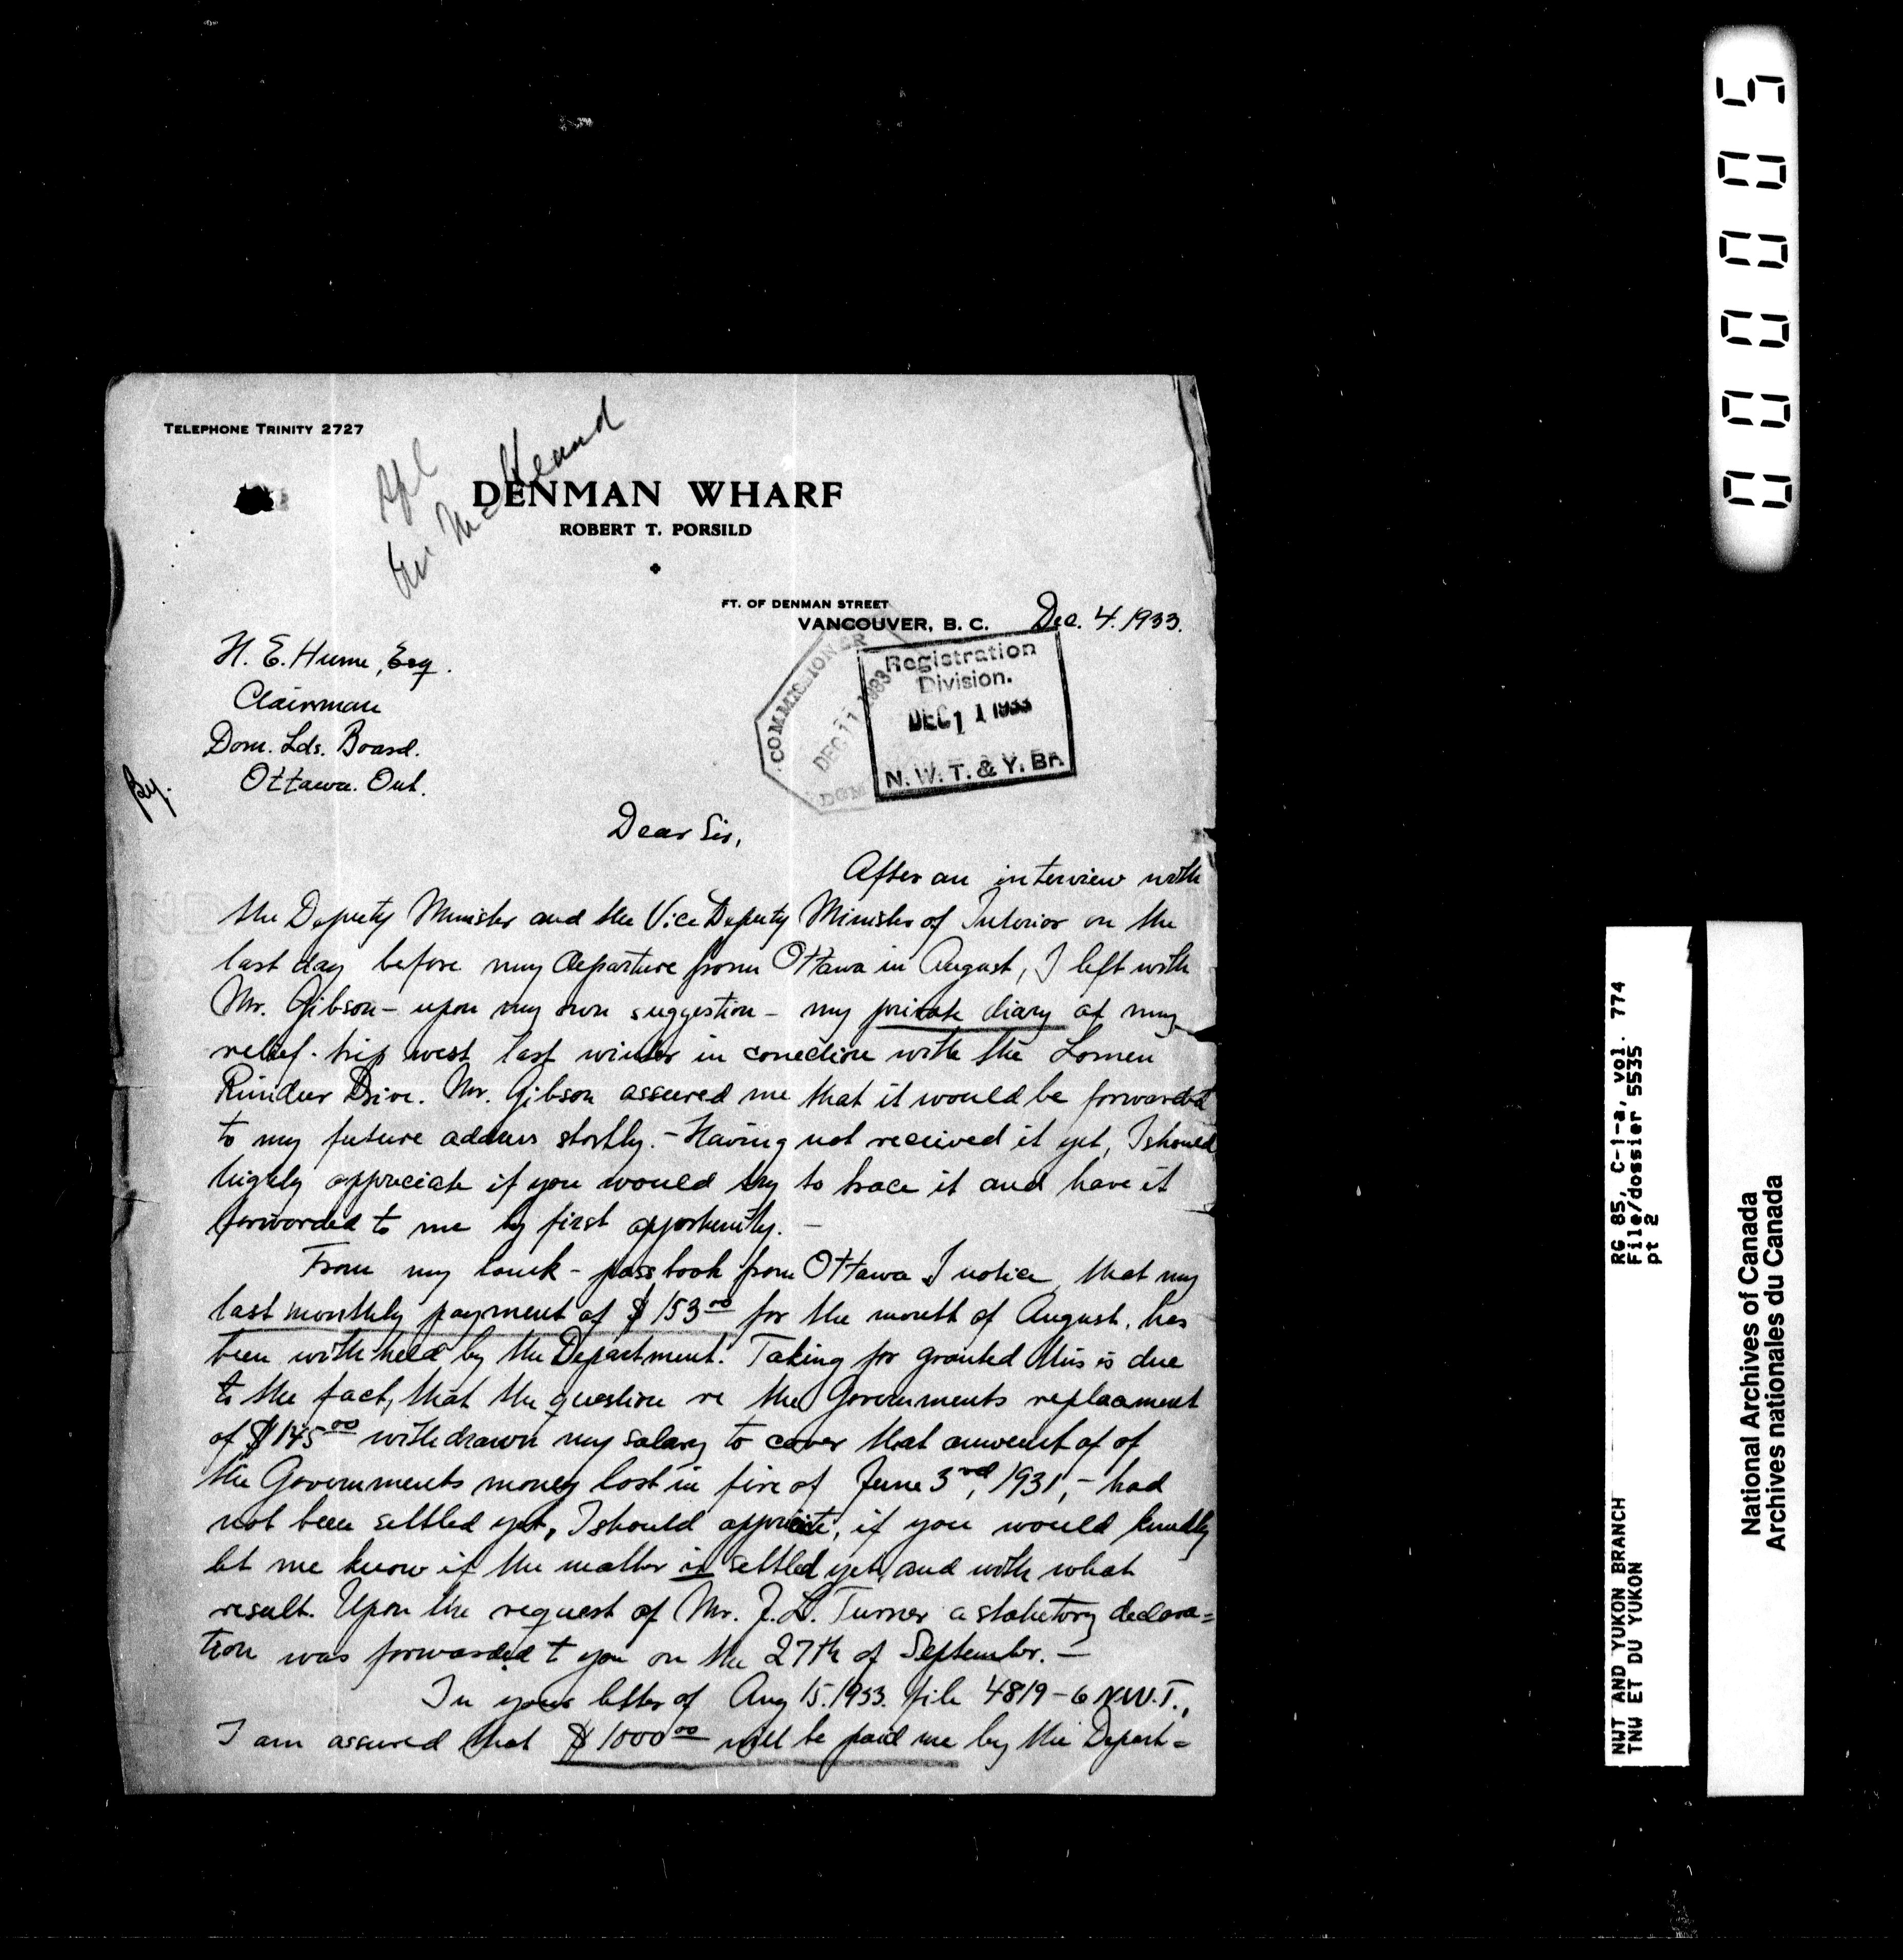 TELEPHONE TRINITY 2727
Mr McKeand
DENMAN WHARF
ROBERT T. PORSILD
FT. OF DENMAN STREET
VANCOUVER, B. C. Dec. 4. 1933.
H. E. Hume, Esq.
Chairman
Dom. Lds. Board.
Ottawa. Ont.
COMMISSIONER
DEC 11 1933
DOM
Registration
Division.
DEC 11 1933
N. W. T. & Y. Br.
Dear Sir,
After an interview with
the Deputy Minister and the Vice Deputy Minister of Interior on the
last day before my departure from Ottawa in August, I left with
Mr. Gibson – upon my own suggestion – my private diary of my
relief-trip west last winter in conection with the Lomen
Reindeer Drive. Mr. Gibson assured me that it would be forwarded
to my future address shortly. – Having not received it yet, I should
highly appreciate if you would try to trace it and have it
forwarded to me by first opportunity. –
From my bank-passbook from Ottawa I notice, that my
last monthly payment of $153.00 for the month of August, has
been withheld by the Department. Taking for granted this is due
to the fact, that the question re the Governments replacment
of $145.00 withdrawn my salary to cover that amount of of
the Governments money lost in fire of June 3rd, 1931, – had
not been settled yet, I should appriciate, if you would kindly
let me know if the matter is settled yet, and with what
result. Upon the request of Mr. J. L. Turner a statutory declara=
tion was forwarded t you on the 27th of September. –
In your letter of Aug 15. 1933. file 4819-6 N.W.T.,
I am assured that $1000.00 will be paid me by the Depart=
000005
RG 85, C-1-a, vol. 774
File/dossier 5535
pt 2
NWT AND YUKON BRANCH
TNW ET DU YUKON
National Archives of Canada
Archives nationales du Canada